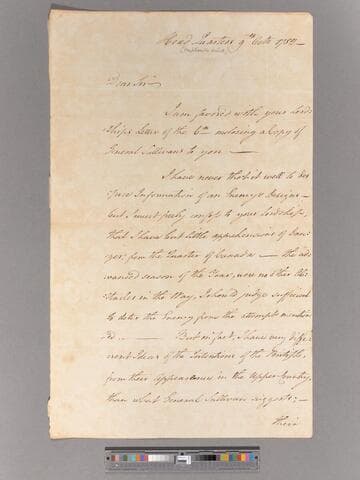 Head Quarters 9th Octr 1782—
Dear Sir—
I am favored with your Lord-
ships Letter of the 6th inclosing a Copy of
General Sullivans to you —
I have never thot it well to des-
pise Information of an Enemys Designs—
but I must freely confess to your Lordship,
that I have but little apprehensions of Dan-
ger, from the Quarter of Canada — the ad-
vanced season of the Year, were no other Ob-
stacles in the Way, I should judge sufficient
to deter the Enemy from the attempt mention-
ed — But in fact, I have very diffe-
rent Ideas of the Intentions of the British,
from their Appearance in the upper Country,
than what General Sullivan suggests;—
their